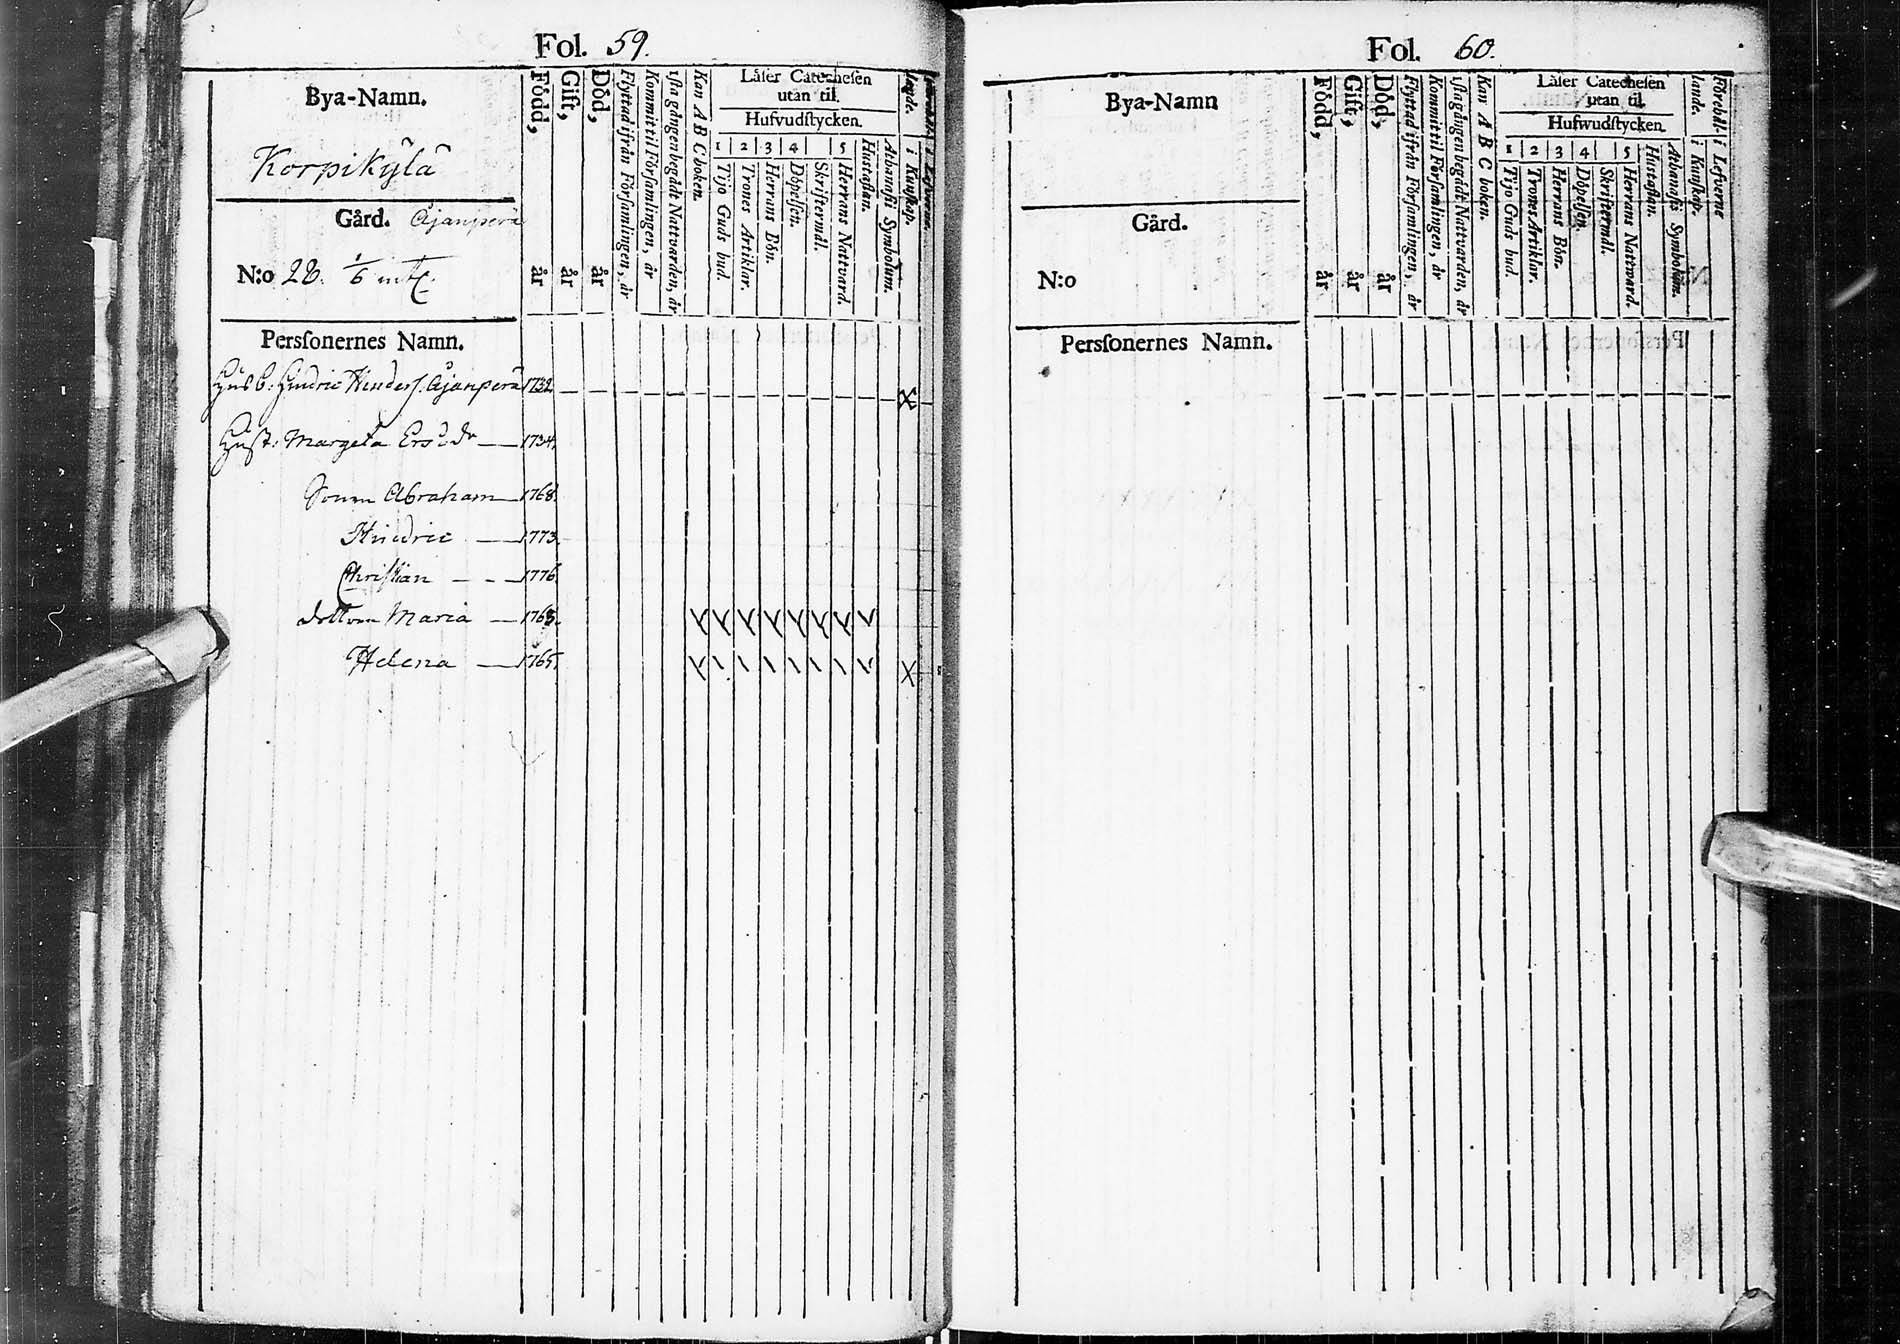 Fol. 59.
Bya-Namn.
Korpikylä
Gård. Äjanperä
N:o 28. 1/6 mtl.
Född, år
Gift, år
Död, år
Flyttad ifrån Församlingen, år
Kommit til Församlingen, år
1sta gången begådt Nattvarden, år
Kan A B C boken.
Läser Catechesen
utan til.
Hufvudſtycken.
1 2 3 4 5
Tijo Guds bud.
Trones Artiklar.
Herrans Bön.
Döpelſen.
Skriftermål.
Herrans Nattvard.
Huſtaflan.
Athanaſii Symbolum.
i Kunſkap.
Perſonernes Namn.
Husb: Hindric Hinderſ. Äjanperä 1732
Huſt: Margeta Ersdr 1734.
Sonen Abraham 1768.
Hindric 1773.
Chriſtian 1776.
dottren Maria 1763.
Helena 1765.
Fol. 60.
Bya-Namn
Gård.
N:o
Född, år
Gift, år
Död, år
Flyttad ifrån Församlingen, år
Kommit til Församlingen, år
1sta gången begådt Nattvarden, år
Kan A B C boken.
Läser Catechesen
utan til.
Hufwudſtycken.
1 2 3 4 5
Tijo Guds bud.
Trones Artiklar.
Herrans Bön.
Döpelſen.
Skriftermål.
Herrans Nattward.
Huſtaflan.
Athanaſii Symbolum.
Förehål-
lande.
i Kunſkap.
i Lefverne
Perſonernes Namn.